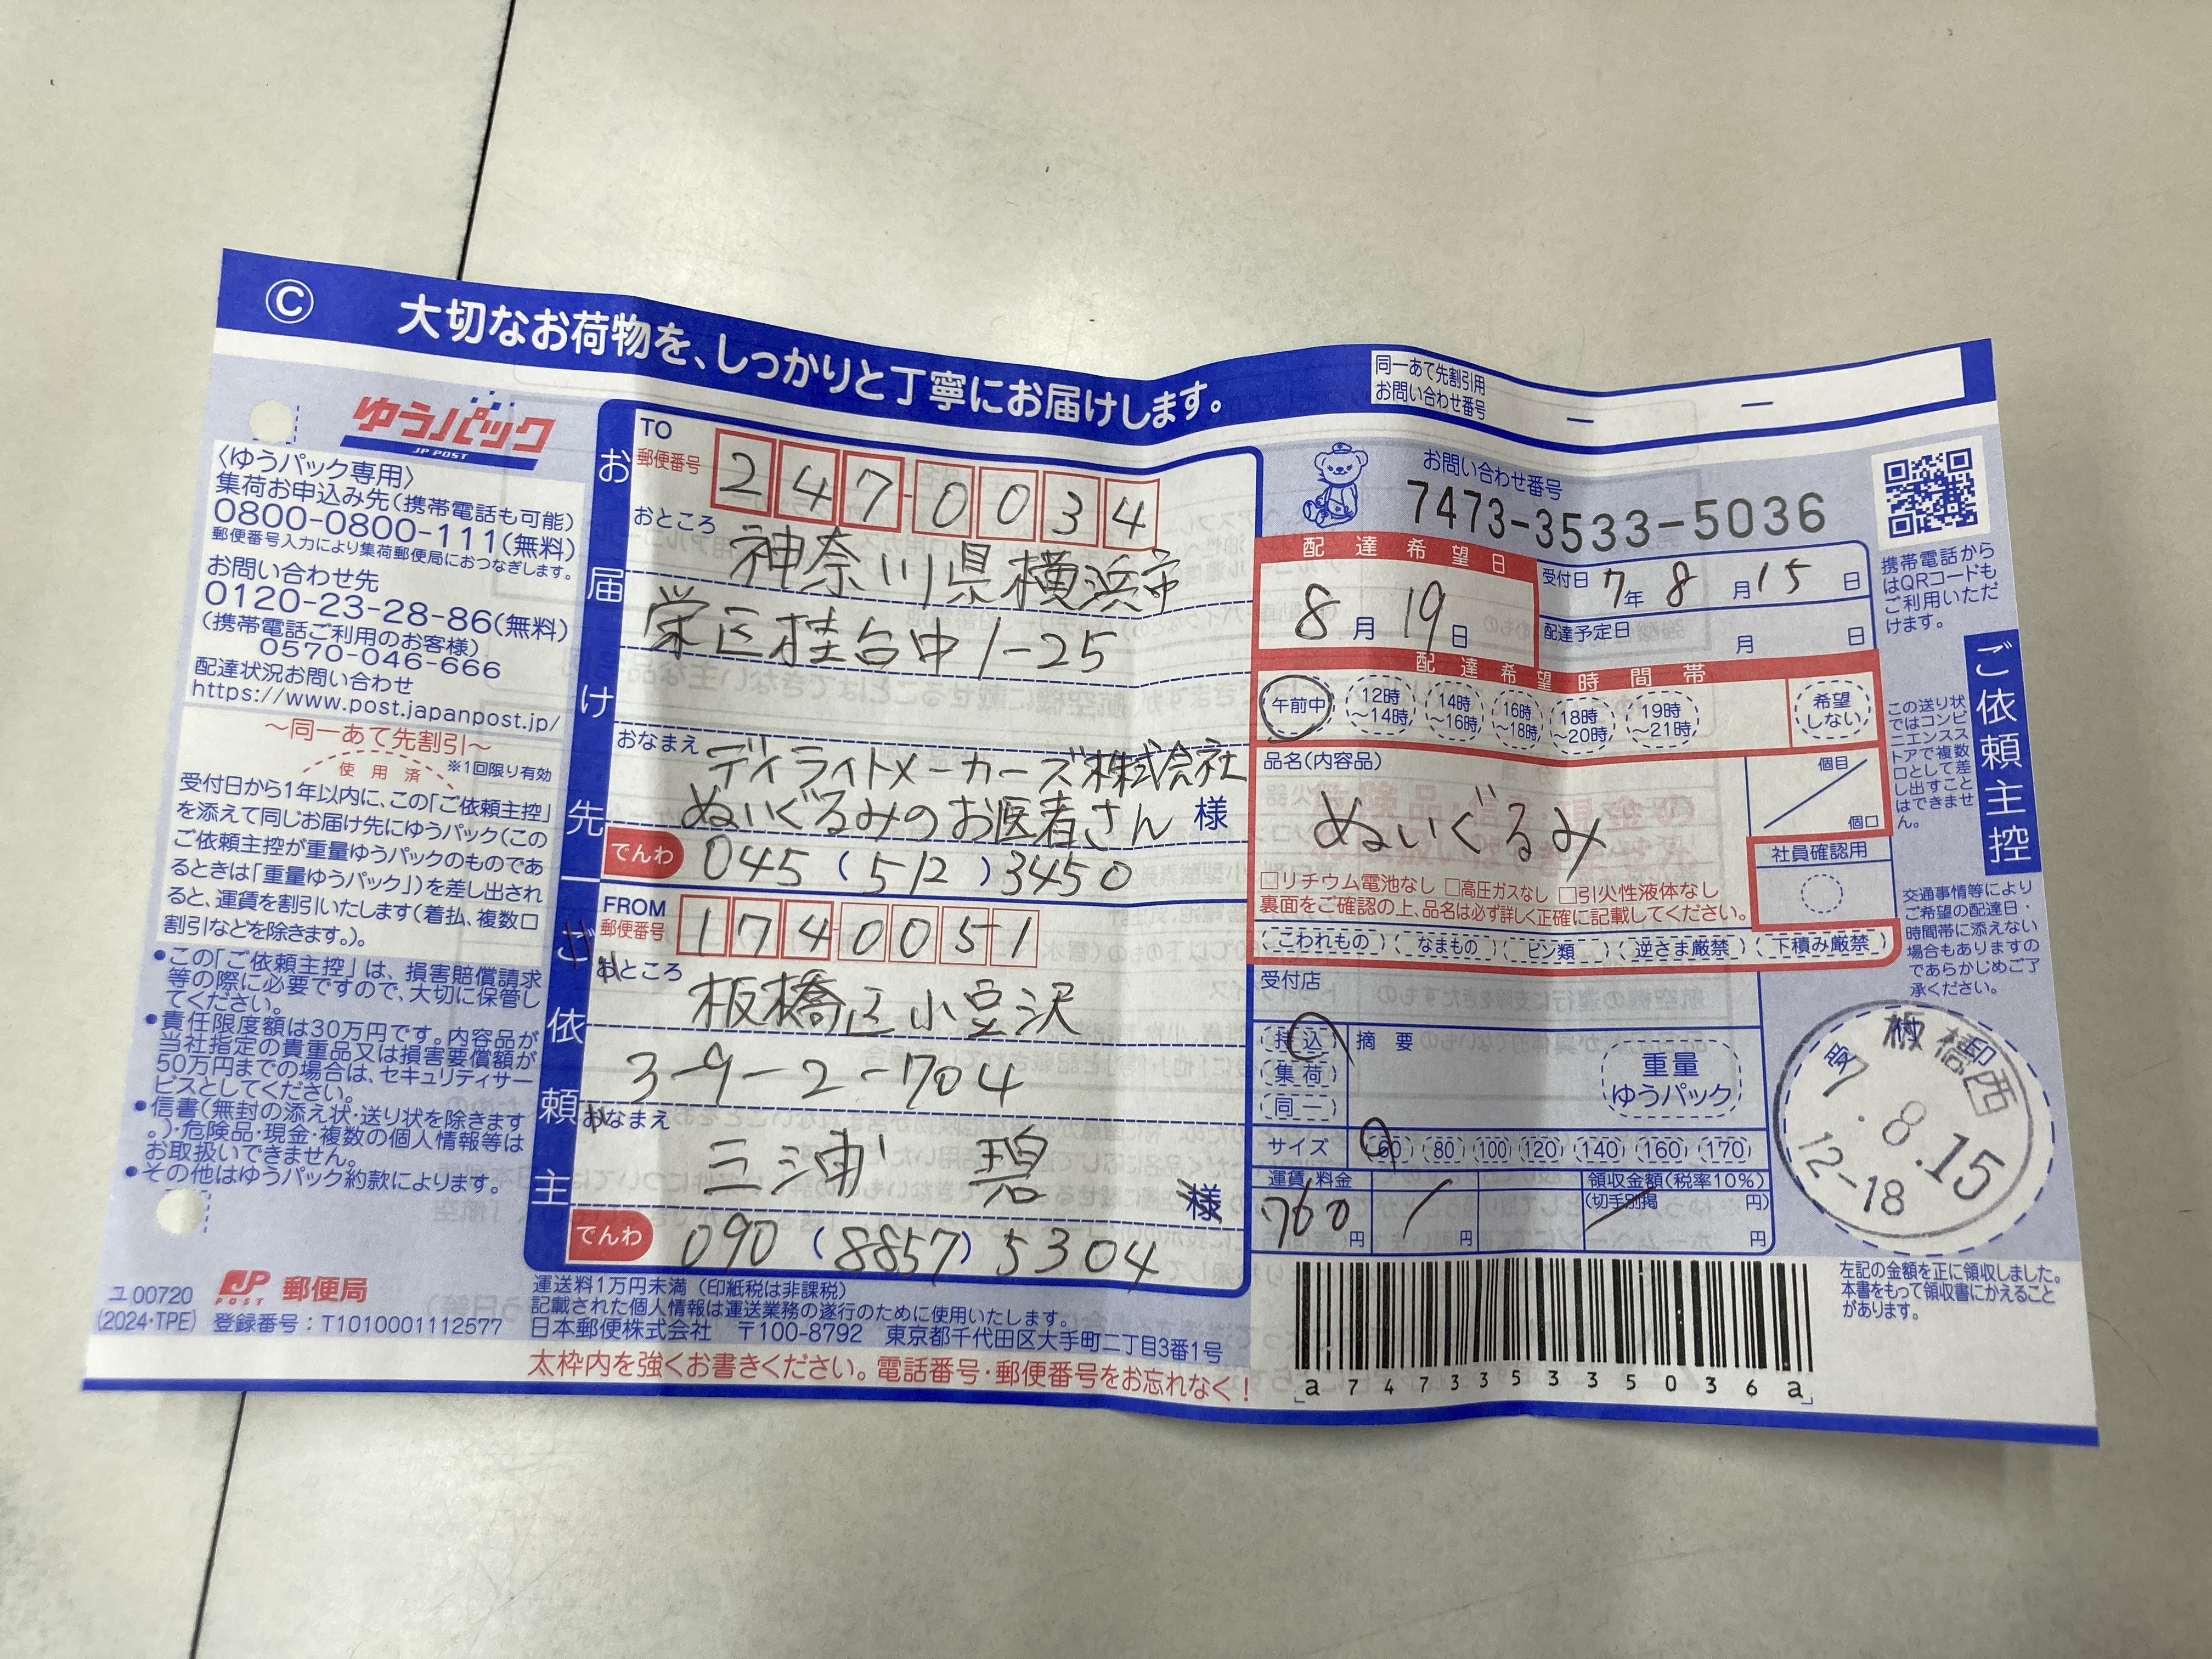 Ⓒ 大切なお荷物を、しっかりと丁寧にお届けします。
同一あて先割引用
お問い合わせ番号
ー ー
ゆうパック
JP POST
〈ゆうパック専用〉
集荷お申込み先(携帯電話も可能)
0800-0800-111(無料)
郵便番号入力により集荷郵便局におつなぎします。
お問い合わせ先
0120-23-28-86(無料)
(携帯電話ご利用のお客様)
0570-046-666
配達状況お問い合わせ
https://www.post.japanpost.jp/
〜同一あて先割引〜
使用済 ※1回限り有効
受付日から1年以内に、この「ご依頼主控」
を添えて同じお届け先にゆうパック(この
ご依頼主控が重量ゆうパックのものであ
るときは「重量ゆうパック」)を差し出され
ると、運賃を割引いたします(着払、複数口
割引などを除きます。)。
●この「ご依頼主控」は、損害賠償請求
等の際に必要ですので、大切に保管し
てください。
●責任限度額は30万円です。内容品が
当社指定の貴重品又は損害要償額が
50万円までの場合は、セキュリティサー
ビスとしてください。
●信書(無封の添え状・送り状を除きます
。)・危険品・現金・複数の個人情報等は
お取扱いできません。
●その他はゆうパック約款によります。
ユ00720
(2024・TPE)
JP POST 郵便局
登録番号:T1010001112577
お届け先
TO
郵便番号 247-0034
おところ
神奈川県横浜市
栄区桂台中1-25
おなまえ
ディライトメーカーズ株式会社
ぬいぐるみのお医者さん 様
でんわ 045 (512) 3450
ご依頼主
FROM
郵便番号 174-0051
おところ
板橋区小豆沢
3-9-2-704
おなまえ
三浦 碧
様
でんわ 090 (8857) 5304
運送料1万円未満(印紙税は非課税)
記載された個人情報は運送業務の遂行のために使用いたします。
日本郵便株式会社 〒100-8792 東京都千代田区大手町二丁目3番1号
太枠内を強くお書きください。電話番号・郵便番号をお忘れなく!
お問い合わせ番号
7473-3533-5036
配達希望日
8月19日
受付日 7年 8月15日
配達予定日 月 日
配達希望時間帯
午前中 12時〜14時 14時〜16時 16時〜18時 18時〜20時 19時〜21時 希望しない
品名(内容品)
ぬいぐるみ
個目
個口
社員確認用
□リチウム電池なし □高圧ガスなし □引火性液体なし
裏面をご確認の上、品名は必ず詳しく正確に記載してください。
こわれもの なまもの ビン類 逆さま厳禁 下積み厳禁
受付店
持込
集荷
同一
摘要
重量
ゆうパック
サイズ 60 80 100 120 140 160 170
運賃料金 領収金額(税率10%)
(切手別掲 円)
760円 円 円
a747335335036a
携帯電話から
はQRコードも
ご利用いただ
けます。
ご依頼主控
この送り状
ではコンビ
ニエンスス
トアで複数
口として差
し出すこと
はできませ
ん。
交通事情等により
ご希望の配達日・
時間帯に添えない
場合もありますの
であらかじめご了
承ください。
受付印
板橋西
7.8.15
12-18
左記の金額を正に領収しました。
本書をもって領収書にかえること
があります。